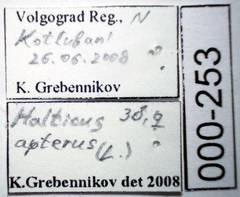 Volgograd Reg., N
Kotluban'
26.06.2008
K. Grebennikov
Halticus 3♂, ♀
apterus (L.)
K.Grebennikov det 2008
000-253